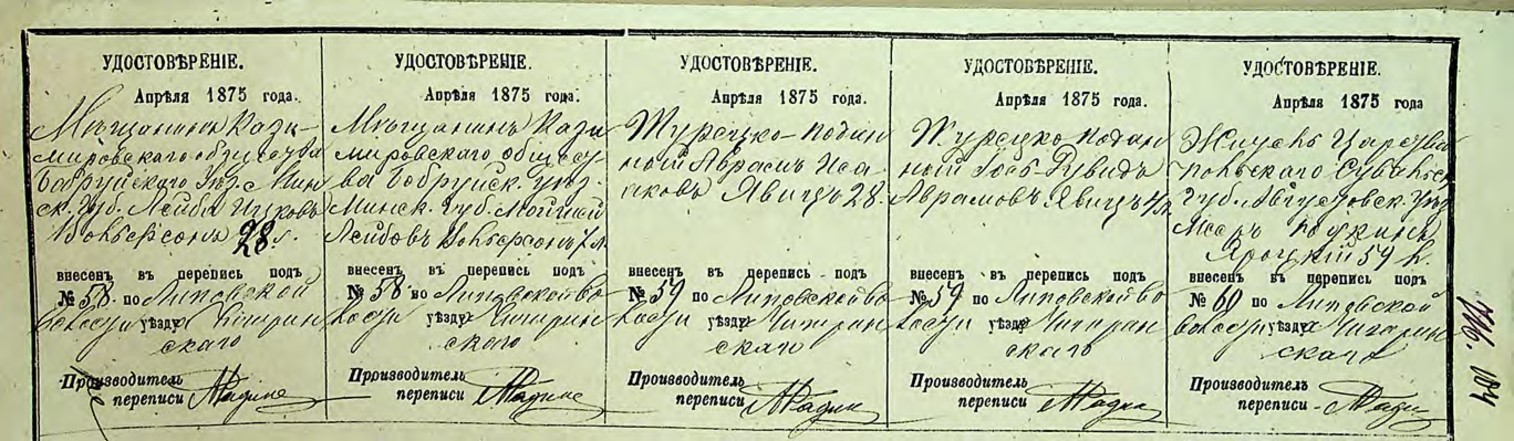 УДОСТОВѢРЕНІЕ.
Апрѣля 1875 года.
Мѣщанинъ Кази-
мировскаго общества
Бобруйскаго Уѣз. Мин
ск. Губ. Лейба Ицковъ
Вольфсонъ 28 л.
внесенъ въ перепись подъ
№ 58 по Липовской
волости уѣзда Чигирин
скаго
Производитель
переписи
УДОСТОВѢРЕНІЕ.
Апрѣля 1875 года.
Мѣщанинъ Кази
мировскаго общест
ва Бобруйск. уѣз.
Минск. Губ.
Лейбовъ Вольфсонъ 7 л.
внесенъ въ перепись подъ
№ 58 по Липовской во
лости уѣзда Чигирин
скаго
Производитель
переписи
УДОСТОВѢРЕНІЕ.
Апрѣля 1875 года.
Турецко-подан
ный Абрамъ Иса
аковъ Явицъ 28.
внесенъ въ перепись подъ
№ 59 по Липовской во
лости уѣзда Чигирин
скаго
Производитель
переписи
УДОСТОВѢРЕНІЕ.
Апрѣля 1875 года.
Турецко подан
ный Гобъ-Рувидъ
Абрамовъ Явицъ 4 л.
внесенъ въ перепись подъ
№ 59 по Липовской во
лости уѣзда Чигирин
скаго
Производитель
переписи
УДОСТОВѢРЕНІЕ.
Апрѣля 1875 года
Житель
Сувалкск
Губ. Августовск. уѣз
Яроцкій 54 л.
внесенъ въ перепись подъ
№ 60 по Липовской
волости уѣзда Чигирин
скаго
Производитель
переписи